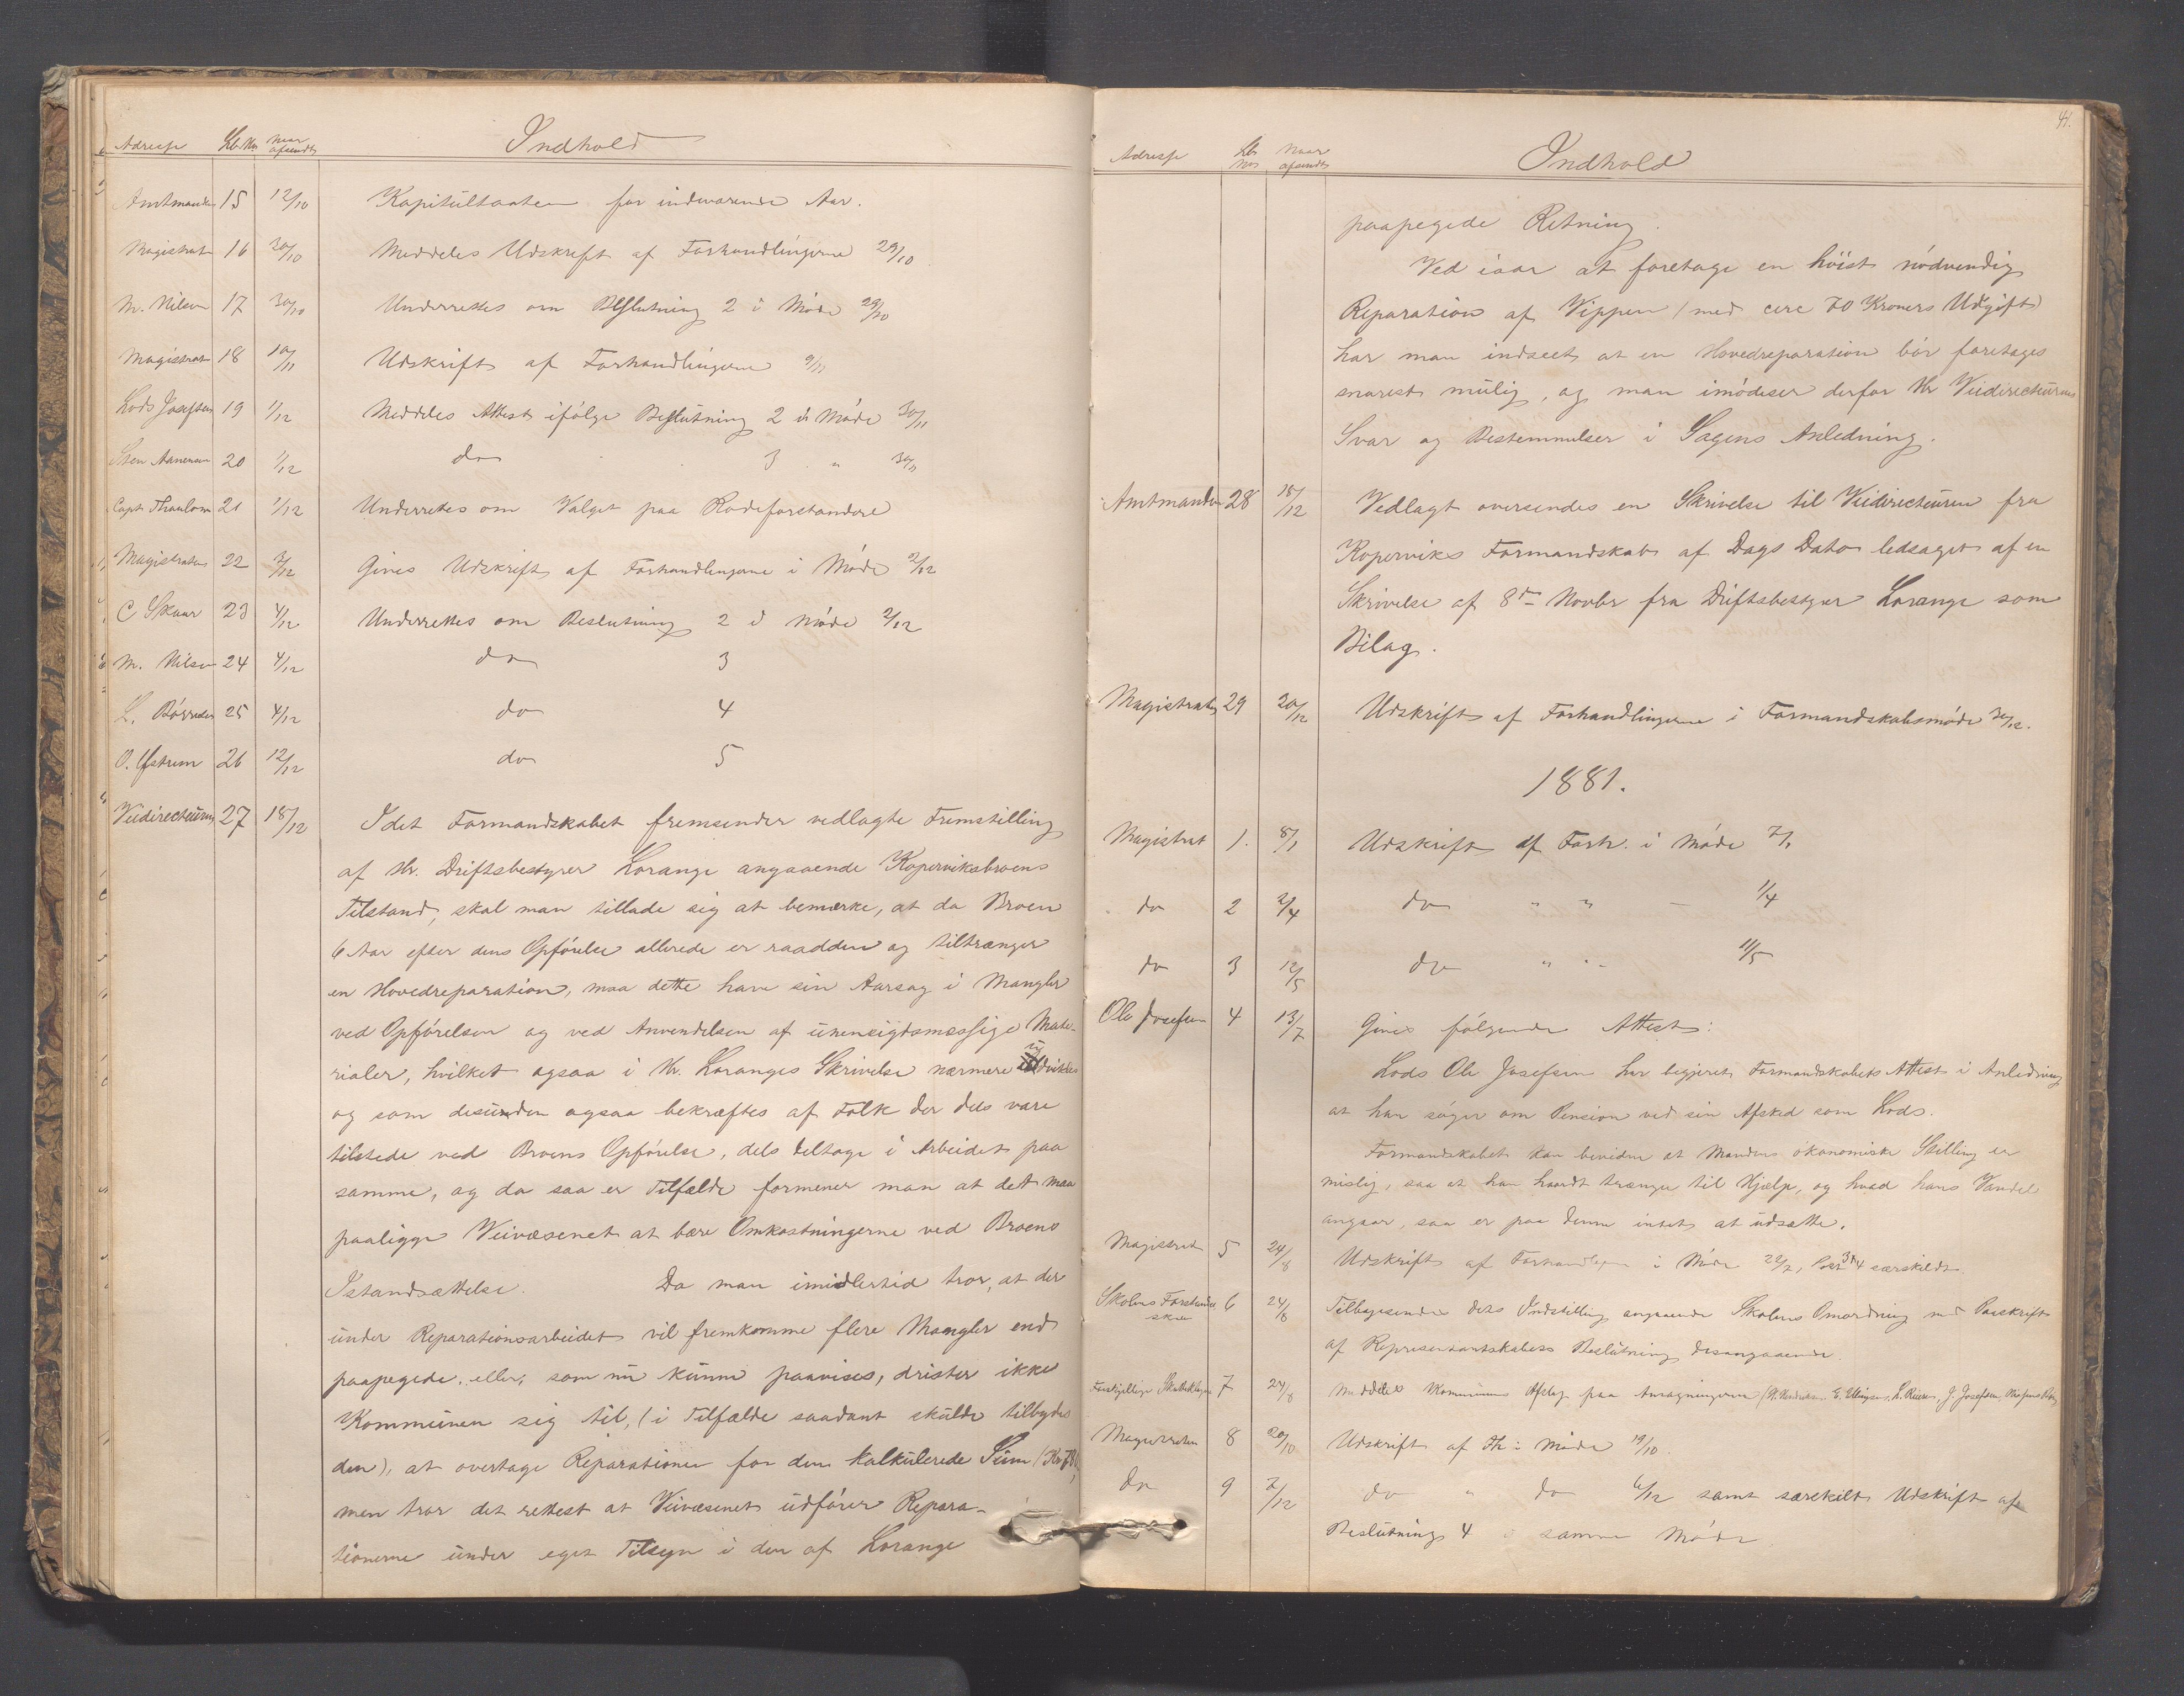 Adresse Lb No Naar afsendt Indhold
Amtmanden 15 12/10 Kapitültaxten for indeværende Aar.
Magistrat 16 30/10 Meddeles Udskrift af Forhandlingerne 29/10
M. Nilsen 17 30/10 Underrettes om Beslutning 2 i Møde 29/10
Magistrat 18 10/11 Udskrift af Forhandlingerne 9/11
Lods Josefsen 19 1/12 Meddeles Attest ifølge Beslutning 2 i Møde 30/11
Sten Aanensen 20 1/12 do 3 " 30/11
Capt Thaulow 21 1/12 Underrettes om Valget paa Rodeforstandere
Magistraten 22 3/12 Gives Udskrift af Forhandlingerne i Møde 2/12
C Skaar 23 4/12 Underrettes om Beslutning 2 i Møde 2/12
M. Nilsen 24 4/12 do 3
L. 25 4/12 do 4
O. Østrem 26 12/12 do 5
Veidirecteuren 27 18/12 Idet Formandskabet fremsender vedlagte Fremstilling
af Hr. Driftsbestyrer Lorange angaaende Koperviksbroens
Tilstand, skal man tillade sig at bemærke, at da Broen
6 Aar efter dens Opførelse allerede er raadden og tiltrænger
en Hovedreparation, maa dette have sin Aarsag i Mangler
ved Opførelsen og ved Anvendelsen af ürensigtsmæssige Mate-
rialer, hvilket ogsaa i Hr. Loranges Skrivelse nærmere üdvikles
og som desünden ogsaa bekræftes af Folk der dels vare
tilstede ved Broens Opførelse, dels deltoge i Arbeidet paa
samme, og da saa er Tilfælde formener man at det maa
paaligge Veivæsenet at bære Omkostningerne ved Broens
Istandsættelse. Da man imidlertid tror, at der
ünder Reparationsarbeidet vil fremkomme flere Mangler end
paapegede, eller, som nü künne paavises, drister ikke
Kommünen sig til, (i Tilfælde saadant skülde tilbydes
den), at overtage Reparationen for den kalkülerede Süm
men tror det rettest at Veivæsenet üdfører Repara-
tionerne ünder eget Tilsyn i den af Lorange
41.
Adresse Lb No Naar afsendt Indhold
paapegede Retning.
Ved iaar at foretage en høist nødvendig
Reparation af Vippen (med circ 70 Kroners Udgift)
har man indseet at en Hovedreparation bør foretages
snarest mülig, og man imødeser derfor Hr Veidirecteürens
Svar og Bestemmelser i Sagens Anledning.
Amtmanden 28 18/12 Vedlagt oversendes en Skrivelse til Veidirecteüren fra
Koperviks Formandskab af Dags Dato ledsaget af en
Skrivelse af 8de Novbr fra Driftsbestyrer Lorange som
Bilag.
Magistrat 29 30/12 Udskrift af Forhandlingerne i Formandskabsmøde 30/12.
1881.
Magistrat 1. 8/1 Udskrift af Forh. i Møde 7/1
do 2 2/4 do " " — 1/4
do 3 12/5 do " " - 11/5
Ole Josefsen 4 13/7 Gives følgende Attest:
Lods Ole Josefsen har begjæret Formandskabets Attest i Anledning
at han søger om Pension ved sin Afsked som Lods.
Formandskabet kan bevidne at Mandens økonomiske Stilling er
mislig, saa at han haardt trænger til Hjælp, og hvad hans Vandel
angaar, saa er paa denne intet at üdsætte.
Magistrat 5 24/8 Udskrift af Forhandlingerne i Møde 22/7, Post 3 & 4 særskildt.
Skolens Forstander- 6 24/8 Tilbagesendes dets Indstilling angaaende Skolens Omordning med Paaskrift
skab
af Repræsentantskabets Beslütning desangaaende.
Forskjellige Skatteklager 7 24/8 Meddeles Kommünens Afslag paa Ansøgningerne E. Ellingsen, J. Josefsen,
Magistraten 8 20/10 Udskrift af Fh i Møde 19/10.
Do 9 7/12 do " do 6/12 samt særskilt Udskrift af
Beslütning 4 i samme Møde